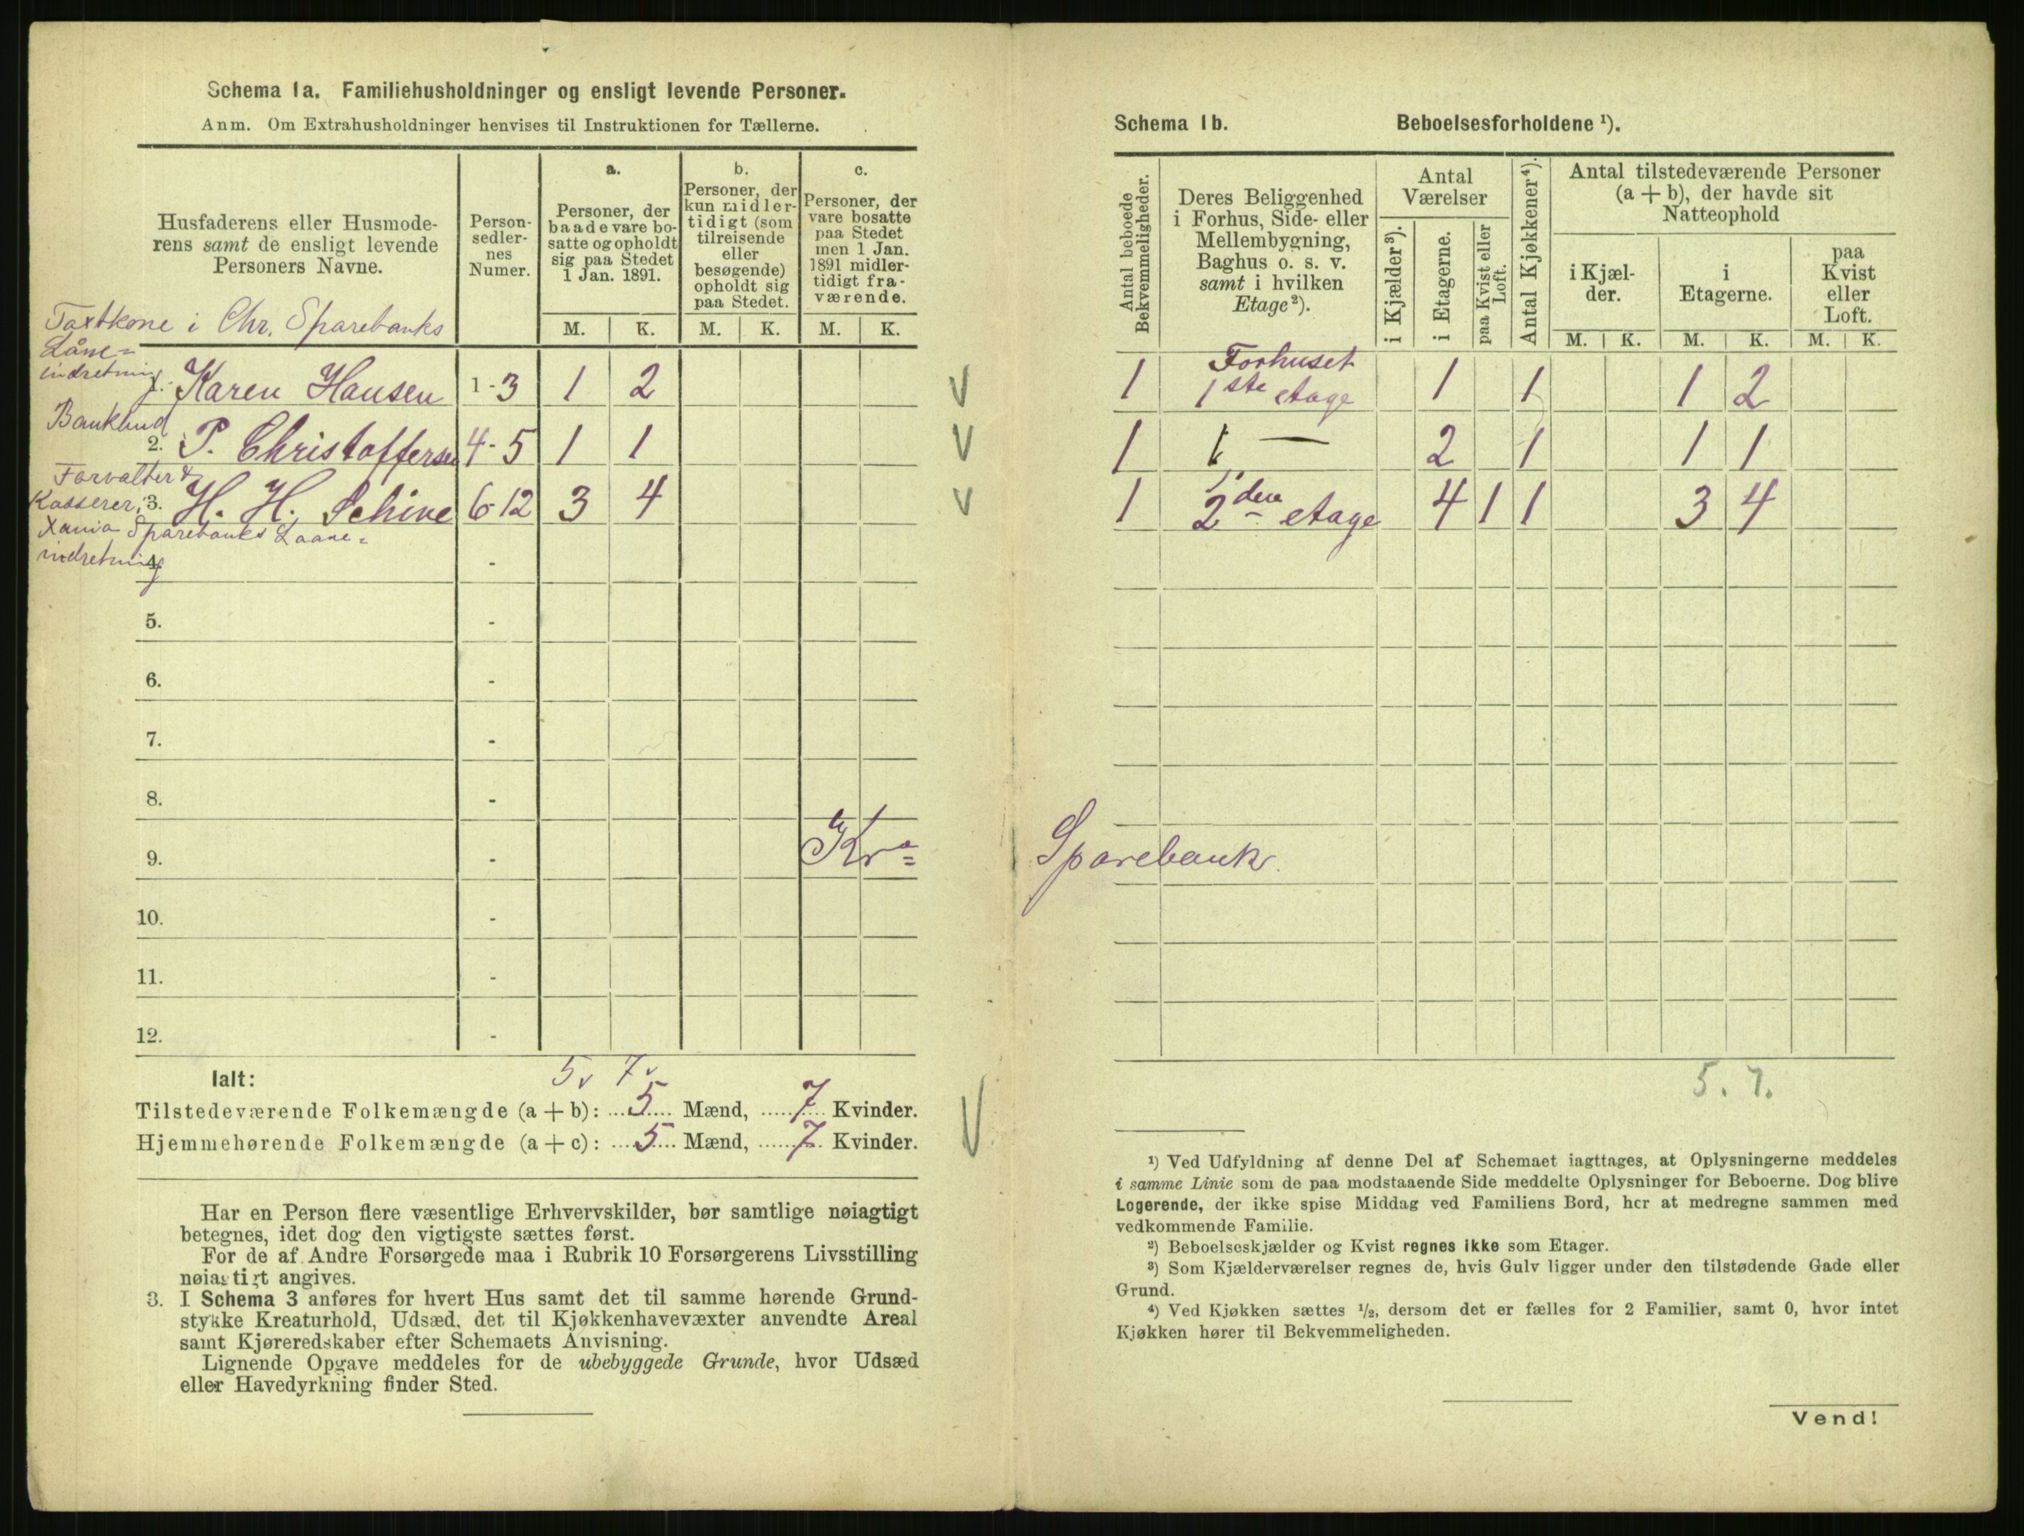 Schema 1a. Familiehusholdninger og ensligt levende Personer.
Anm. Om Extrahusholdninger henvises til Instruktionen for Tællerne.
Husfaderens eller Husmode-
rens samt de ensligt levende
Personers Navne.
Person-
sedler-
nes
Numer.
a.
Personer, der
baade vare bo-
satte og opholdt
sig paa Stedet
1 Jan. 1891.
b.
Personer, der
kun midler-
tidigt (som
tilreisende
eller
besøgende)
opholdt sig
paa Stedet.
c.
Personer, der
vare bosatte
paa Stedet
men 1 Jan.
1891 midler-
tidigt fra-
værende.
M. K. M. K. M. K.
Taxtkone i Chr. Sparebanks
Låne=
indretning
1. Karen Hansen 1-3 1 2
Bankbud
2. P. Christoffersen 4-5 1 1
Forvalter &
Kasserer i
3. H. H. Schive 6-12 3 4
Xania Sparebanks Laane=
indretning
4. -
5. -
6. -
7. -
8. -
9. - Kra=
10. -
11. -
12. -
5 v 7 v
Ialt:
Tilstedeværende Folkemængde (a + b): 5 Mænd, 7 Kvinder.
Hjemmehørende Folkemængde (a + c): 5 Mænd, 7 Kvinder.
Har en Person flere væsentlige Erhvervskilder, bør samtlige nøiagtigt
betegnes, idet dog den vigtigste sættes først.
For de af Andre Forsørgede maa i Rubrik 10 Forsørgerens Livsstilling
nøiagtigt angives.
3. I Schema 3 anføres for hvert Hus samt det til samme hørende Grund-
stykke Kreaturhold, Udsæd, det til Kjøkkenhavevæxter anvendte Areal
samt Kjøreredskaber efter Schemaets Anvisning.
Lignende Opgave meddeles for de ubebyggede Grunde, hvor Udsæd
eller Havedyrkning finder Sted.
Schema 1b. Beboelsesforholdene ¹).
Antal beboede
Bekvemmeligheder.
Deres Beliggenhed
i Forhus, Side- eller
Mellembygning,
Baghus o. s. v.
samt i hvilken
Etage²).
Antal
Værelser
i Kjælder³).
i Etagerne.
paa Kvist eller
Loft.
Antal Kjøkkener⁴).
Antal tilstedeværende Personer
(a + b), der havde sit
Natteophold
i Kjæl-
der.
i
Etagerne.
paa
Kvist
eller
Loft.
M. K. M. K. M. K.
1 Forhuset
1ste etage 1 1 1 2
1 1 — 2 1 1 1
1 2den etage 4 1 1 3 4
Sparebank.
5. 7.
¹) Ved Udfyldning af denne Del af Schemaet iagttages, at Oplysningerne meddeles
i samme Linie som de paa modstaaende Side meddelte Oplysninger for Beboerne. Dog blive
Logerende, der ikke spise Middag ved Familiens Bord, her at medregne sammen med
vedkommende Familie.
²) Beboelseskjælder og Kvist regnes ikke som Etager.
³) Som Kjælderværelser regnes de, hvis Gulv ligger under den tilstødende Gade eller
Grund.
⁴) Ved Kjøkken sættes ½, dersom det er fælles for 2 Familier, samt 0, hvor intet
Kjøkken hører til Bekvemmeligheden.
Vend!